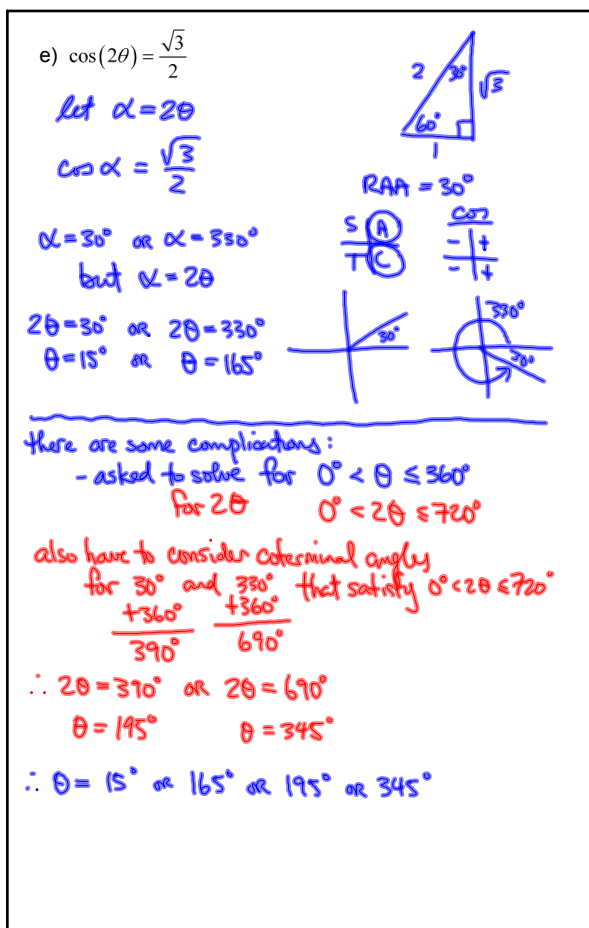 e) cos(2θ) = √3/2
2 30° √3
60°
1
let α = 2θ
cos α = √3/2
RAA = 30°
S A
T C
cos
- +
- +
α = 30° or α = 330°
but α = 2θ
2θ = 30° or 2θ = 330°
θ = 15° or θ = 165°
30°
330°
30°
there are some complications:
- asked to solve for 0° < θ ≤ 360°
for 2θ 0° < 2θ ≤ 720°
also have to consider coterminal angles
for 30° and 330° that satisfy 0° < 2θ ≤ 720°
+360° +360°
390° 690°
∴ 2θ = 390° or 2θ = 690°
θ = 195° θ = 345°
∴ θ = 15° or 165° or 195° or 345°